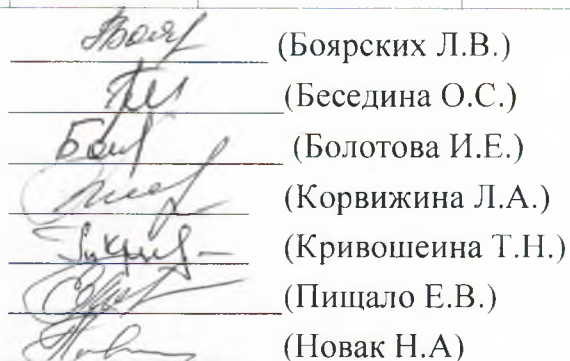 (Боярских Л.В.)
(Беседина О.С.)
(Болотова И.Е.)
(Корвижина Л.А.)
(Кривошеина Т.Н.)
(Пищало Е.В.)
(Новак Н.А)